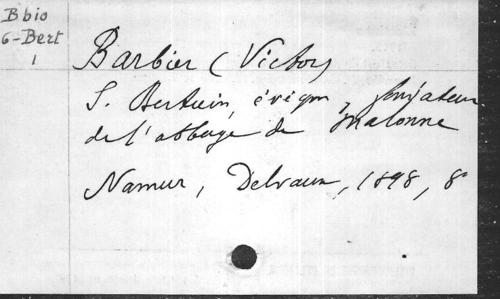 B bio
6-Bert
1
Barbier (Victor)
S. Bertuin, évêque, fondateur
de l'abbaye de Malonne
Namur, Delvaux, 1898, 8°